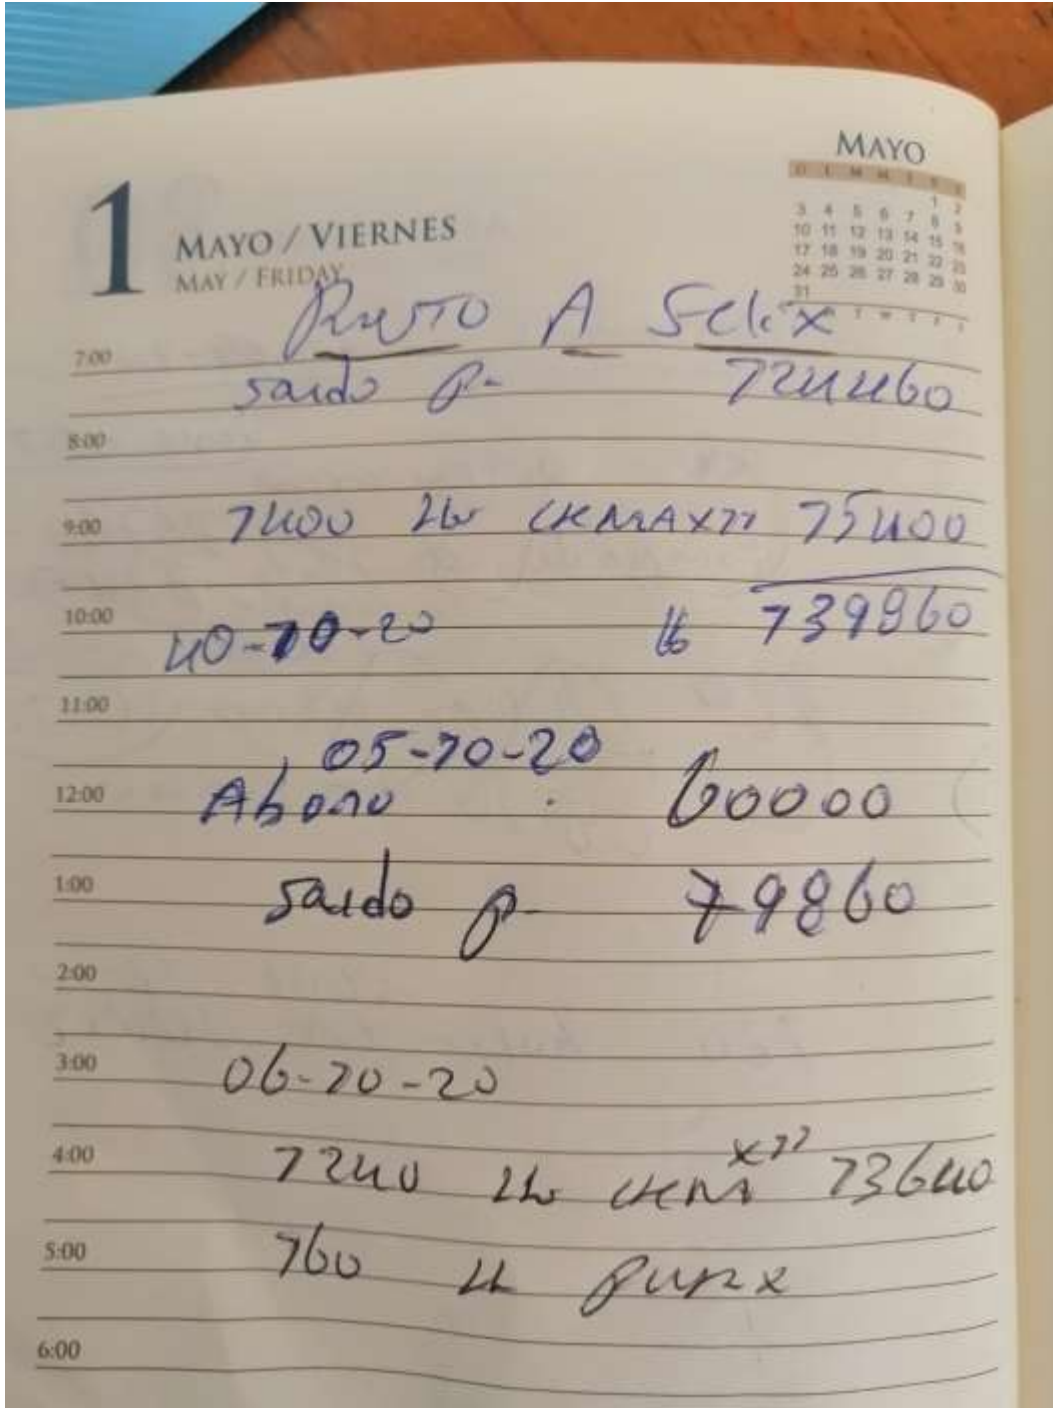 MAYO
D L M M J V S
1 2
3 4 5 6 7 8 9
10 11 12 13 14 15 16
17 18 19 20 21 22 23
24 25 26 27 28 29 30
31
1
MAYO / VIERNES
MAY / FRIDAY
A
7:00
saldo p- 124460
8:00
9:00 1400 lb x11 15400
139860
10:00
-10-20
11:00
05-10-20
12:00 Abono 60000
1:00 saldo p- 79860
2:00
3:00 06-10-20
4:00 1240 lb x11 13640
5:00 160
6:00